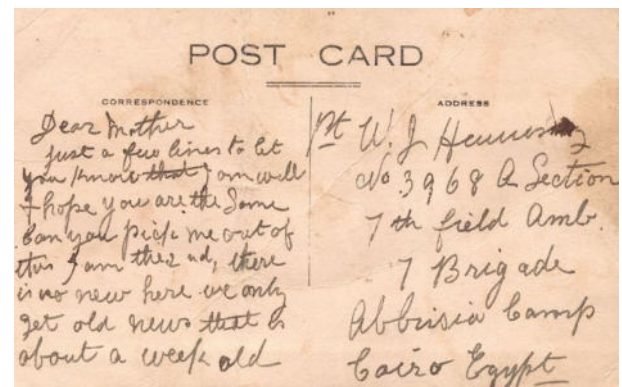 POST CARD
CORRESPONDENCE
ADDRESS
Dear Mother
just a few lines to let
you know that I am well
& hope you are the same
Can you pick me out of
this I am the 2nd, there
is no new here we only
get old news that is
about a week old
Pt W. J
No. 3968 A Section
7th field Amb.
7 Brigade
Abbrisia Camp
Cairo Egypt